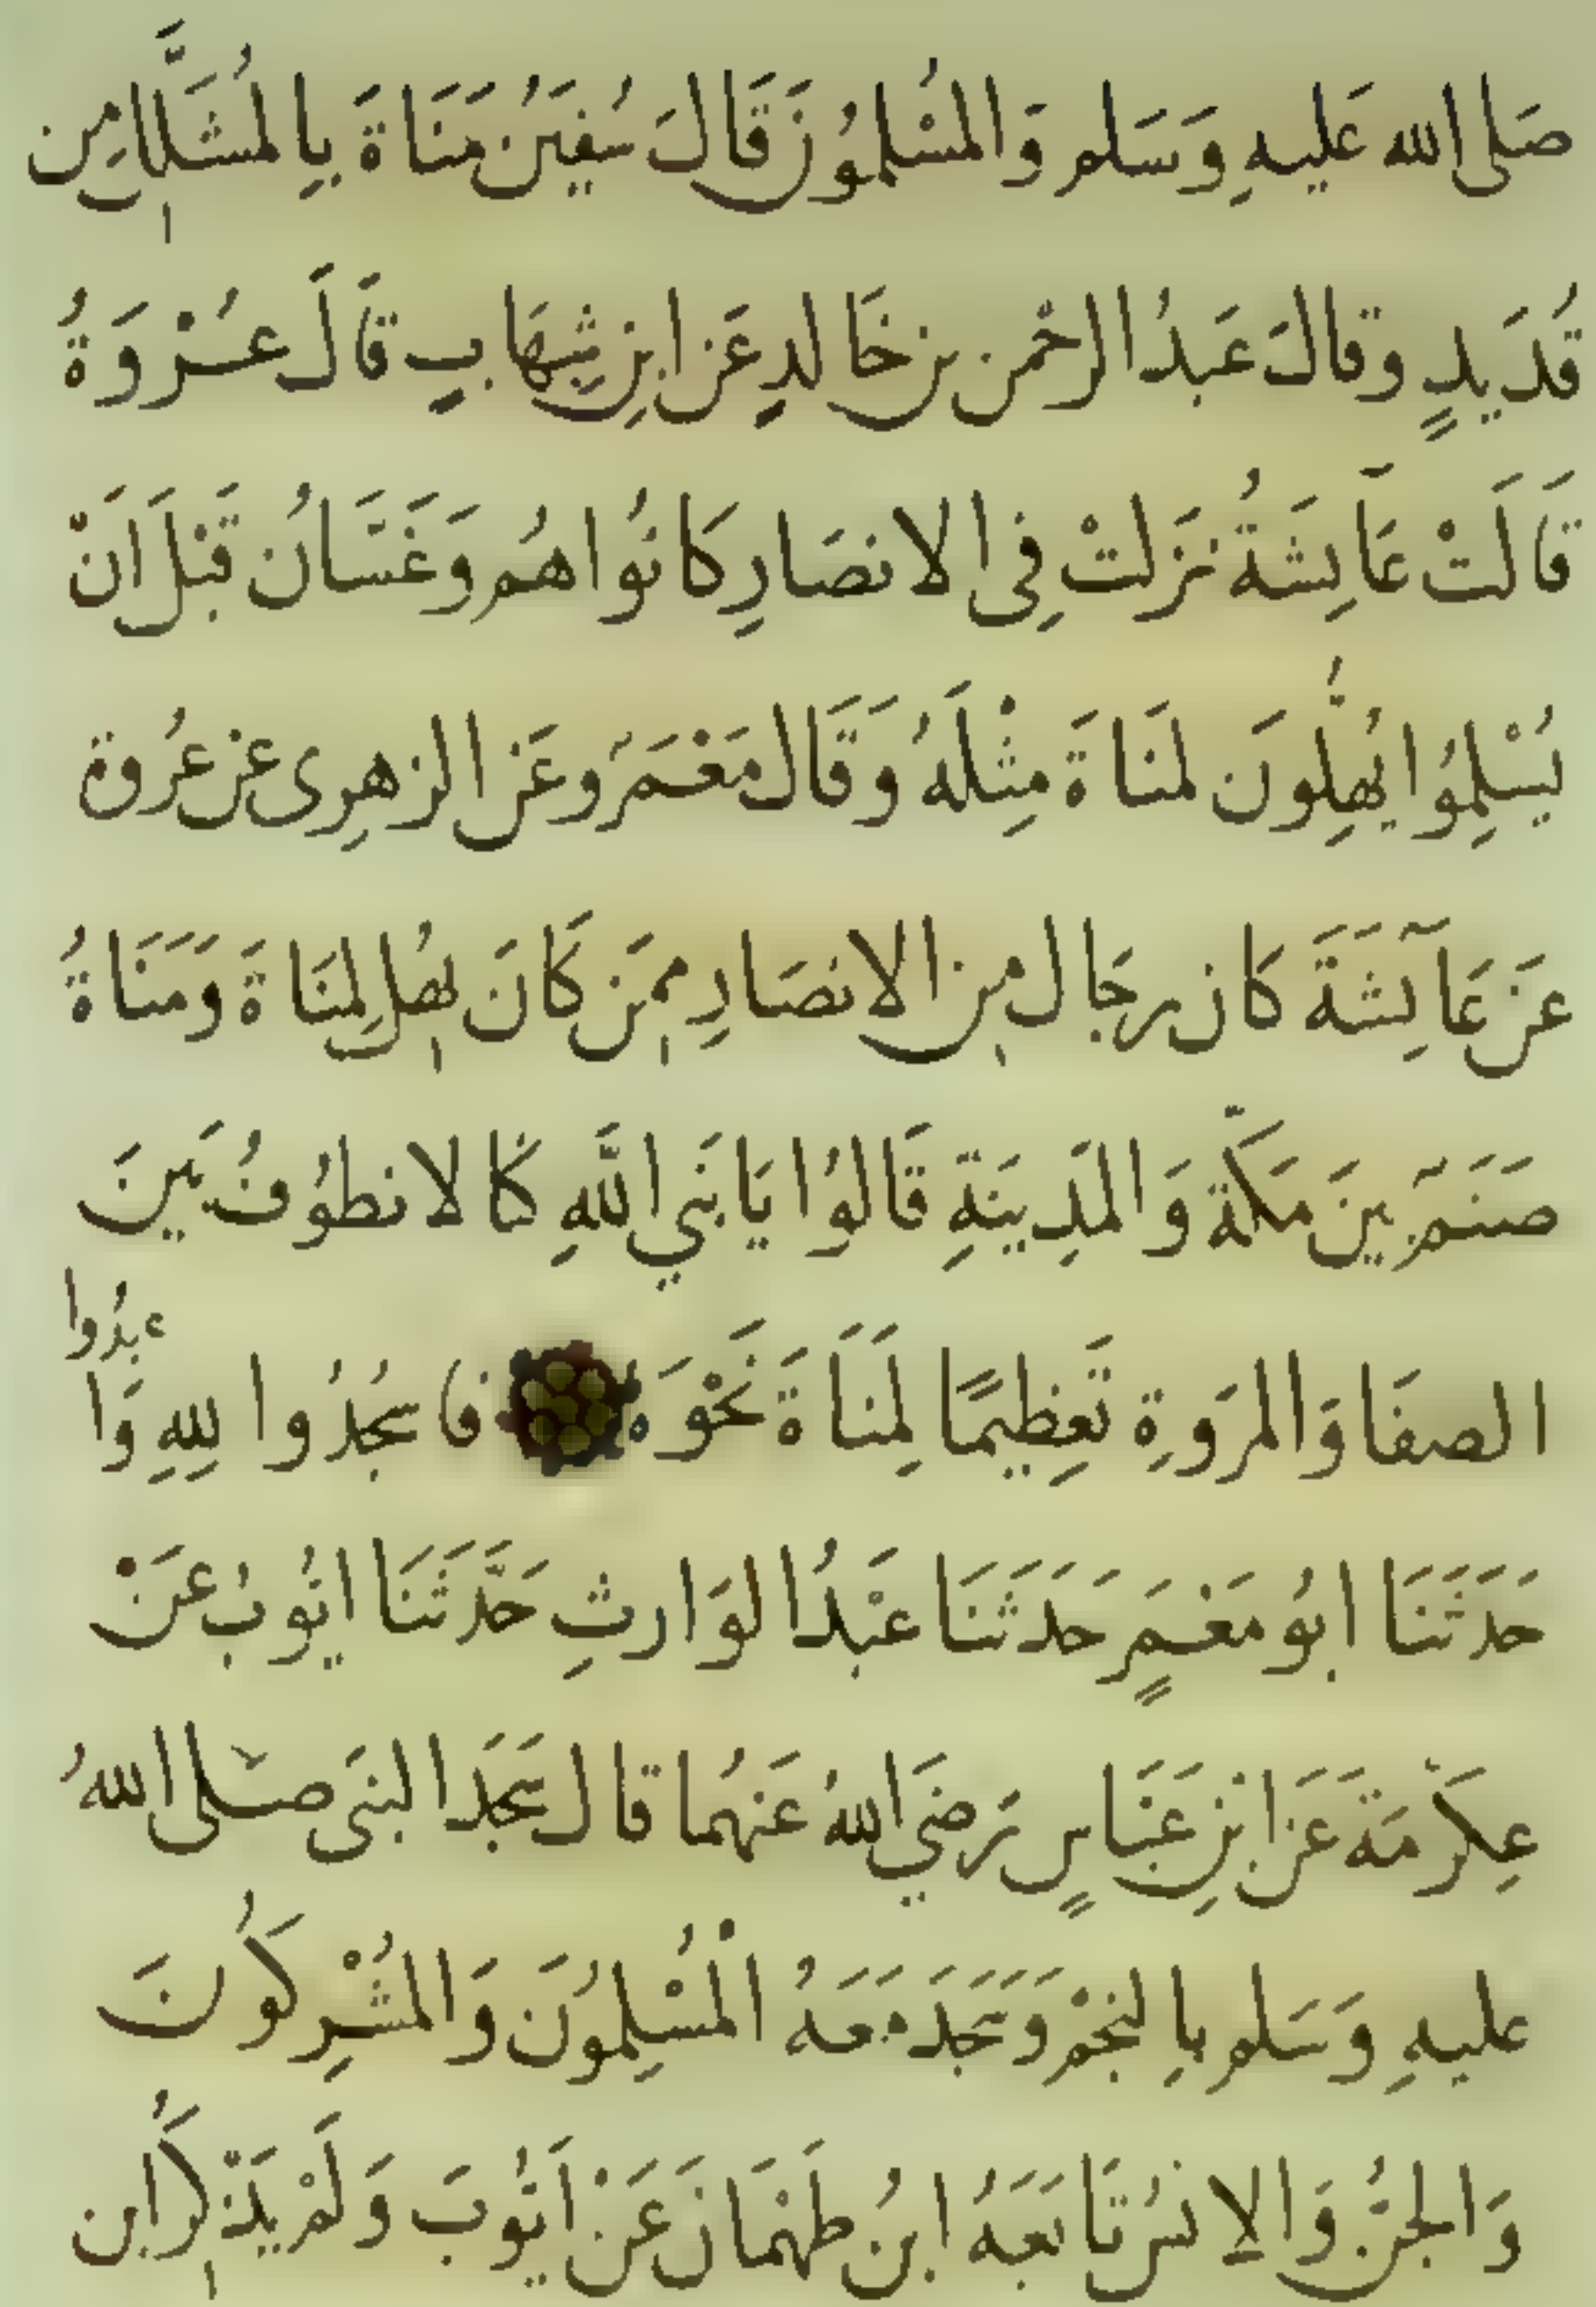 صَلى الله عَليهِ وَسَلم وَالمسْلِمُونَ قَالَ سُفيَنُ مَنَاةَ بِالمُشَلَّلِ مِن
قُدَيدٍ وقالَ عَبدُ الرحْمن بن خَالدِ عَن ابنِ شِهَابٍ قَالَ عُرْوَةُ
قَالَتْ عَآئِشَةُ نَزَلتْ فِي الانصَارِ كَانُوا هُم وَغَسَّانُ قَبْلَ اَنْ
يُسْلِمُوا يُهِلُّونَ لمنَاةَ مِثْلَهُ وَقَال مَعْمَرٌ وعَن الزهرِى عن عُروة
عَن عَآئِشَةَ كَان رِجَال مِن الانصَارِ مِمَّن كَانَ يُهِلُ لِمنَاةَ وَمَنَاةُ
صَنَمٌ بينَ مَكَّة وَالمَدِينَةِ قَالوُا يَا نَبِي اللَّهِ كُنا لا نطوُفُ بَينَ
الصفَا وَالمرَوةِ تَعظِيمًا لِمنَاةَ نَحْوَهُ فاسجُدُوا لِلهِ وَا
عبدُوا
حَدَثَنَا ابوُ مَعْمَرٍ حَدَثَنَا عَبْدُ الوَارثِ حَدَّثَنَا ايُوبُ عَنْ
عِكْرَمَةَ عَن ابْنِ عَبَاسٍ رَضَي اللهُ عَنهُما قال سَجَدَ النبَى صَلى اللهُ
عليهِ وَسَلم بِالنجْمِ وَسَجَدَ مَعَهُ الْمُسْلِمُونَ وَالمُشْرِكُونَ
وَالجنُّ وَالاِنسُ تَابَعَهُ ابنُ طَهْمَانَ عَنْ اَيُوبَ وَلَمْ يَذْكُرِ ابن